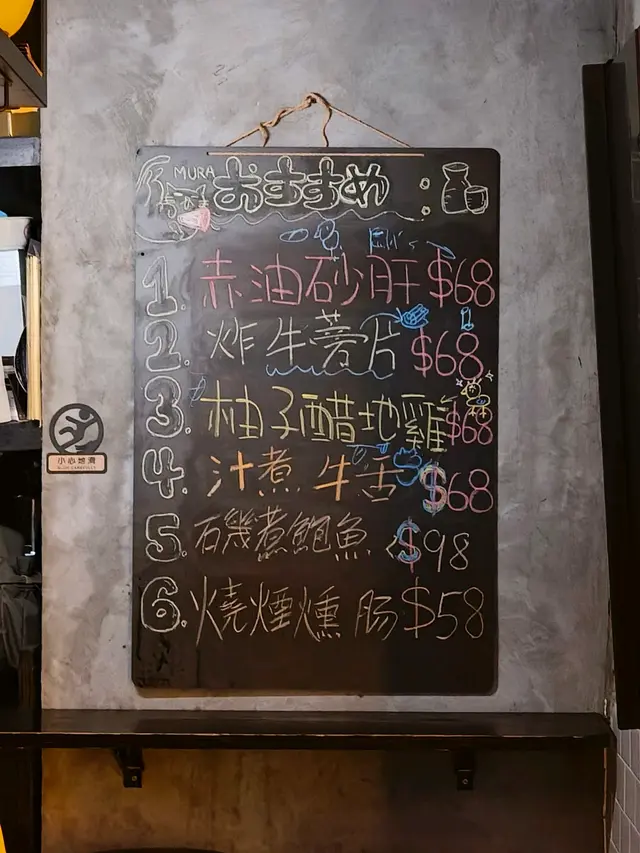 MURA おすすめ:
1. 赤油砂肝 $68
2. 炸牛蒡片 $68
3. 柚子醋地雞 $68
4. 汁煮牛舌 $68
5. 石磯煮鮑魚 $98
6. 燒煙燻肠 $58
小心地滑